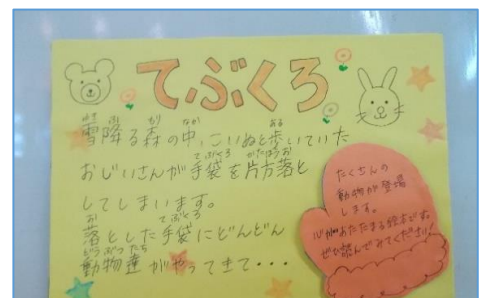 てぶくろ
雪降る森の中、こいぬと歩いていた
おじいさんが手袋を片方落と
してしまいます。
落とした手袋にどんどん
動物達がやってきて・・・
たくさんの
動物が登場
します。
心があたたまる絵本です。
ぜひ読んでみてください!